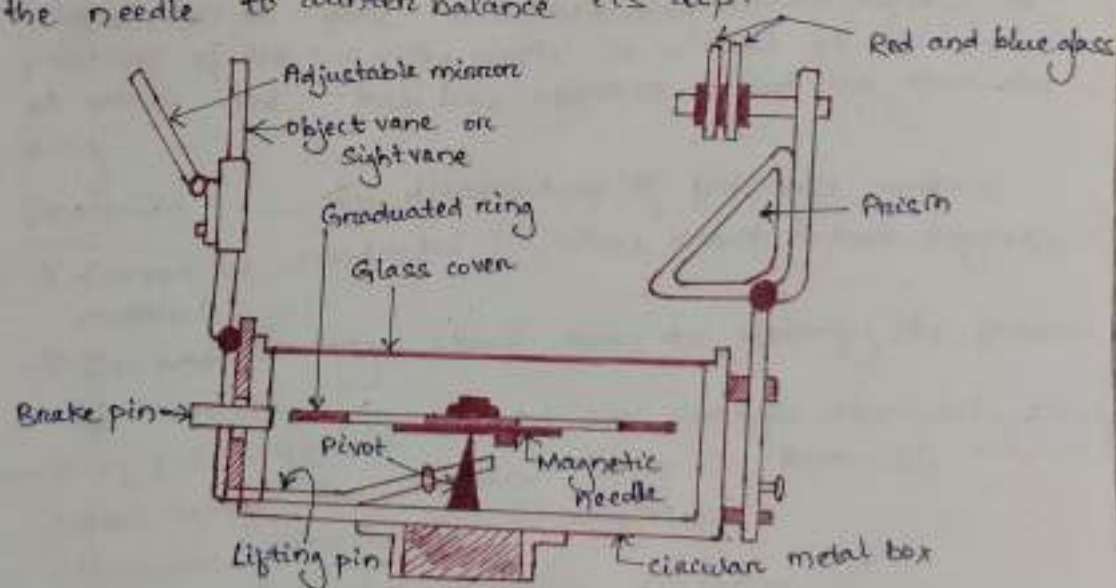 the needle to counter balance its dip.
Red and blue glass
Adjustable mirror
Object vane or
sight vane
Graduated ring
Prism
Glass cover
Brake pin
Pivot
Magnetic
needle
Lifting pin
circular metal box